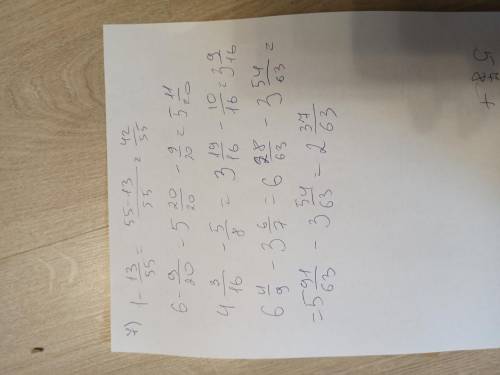 4) 1 - 13/55 = 55-13/55 = 42/55
6 - 9/20 = 5 20/20 - 9/20 = 5 11/20
4 3/16 - 5/8 = 3 19/16 - 10/16 = 3 9/16
6 4/9 - 3 6/7 = 6 28/63 - 3 54/63 =
= 5 91/63 - 3 54/63 = 2 37/63